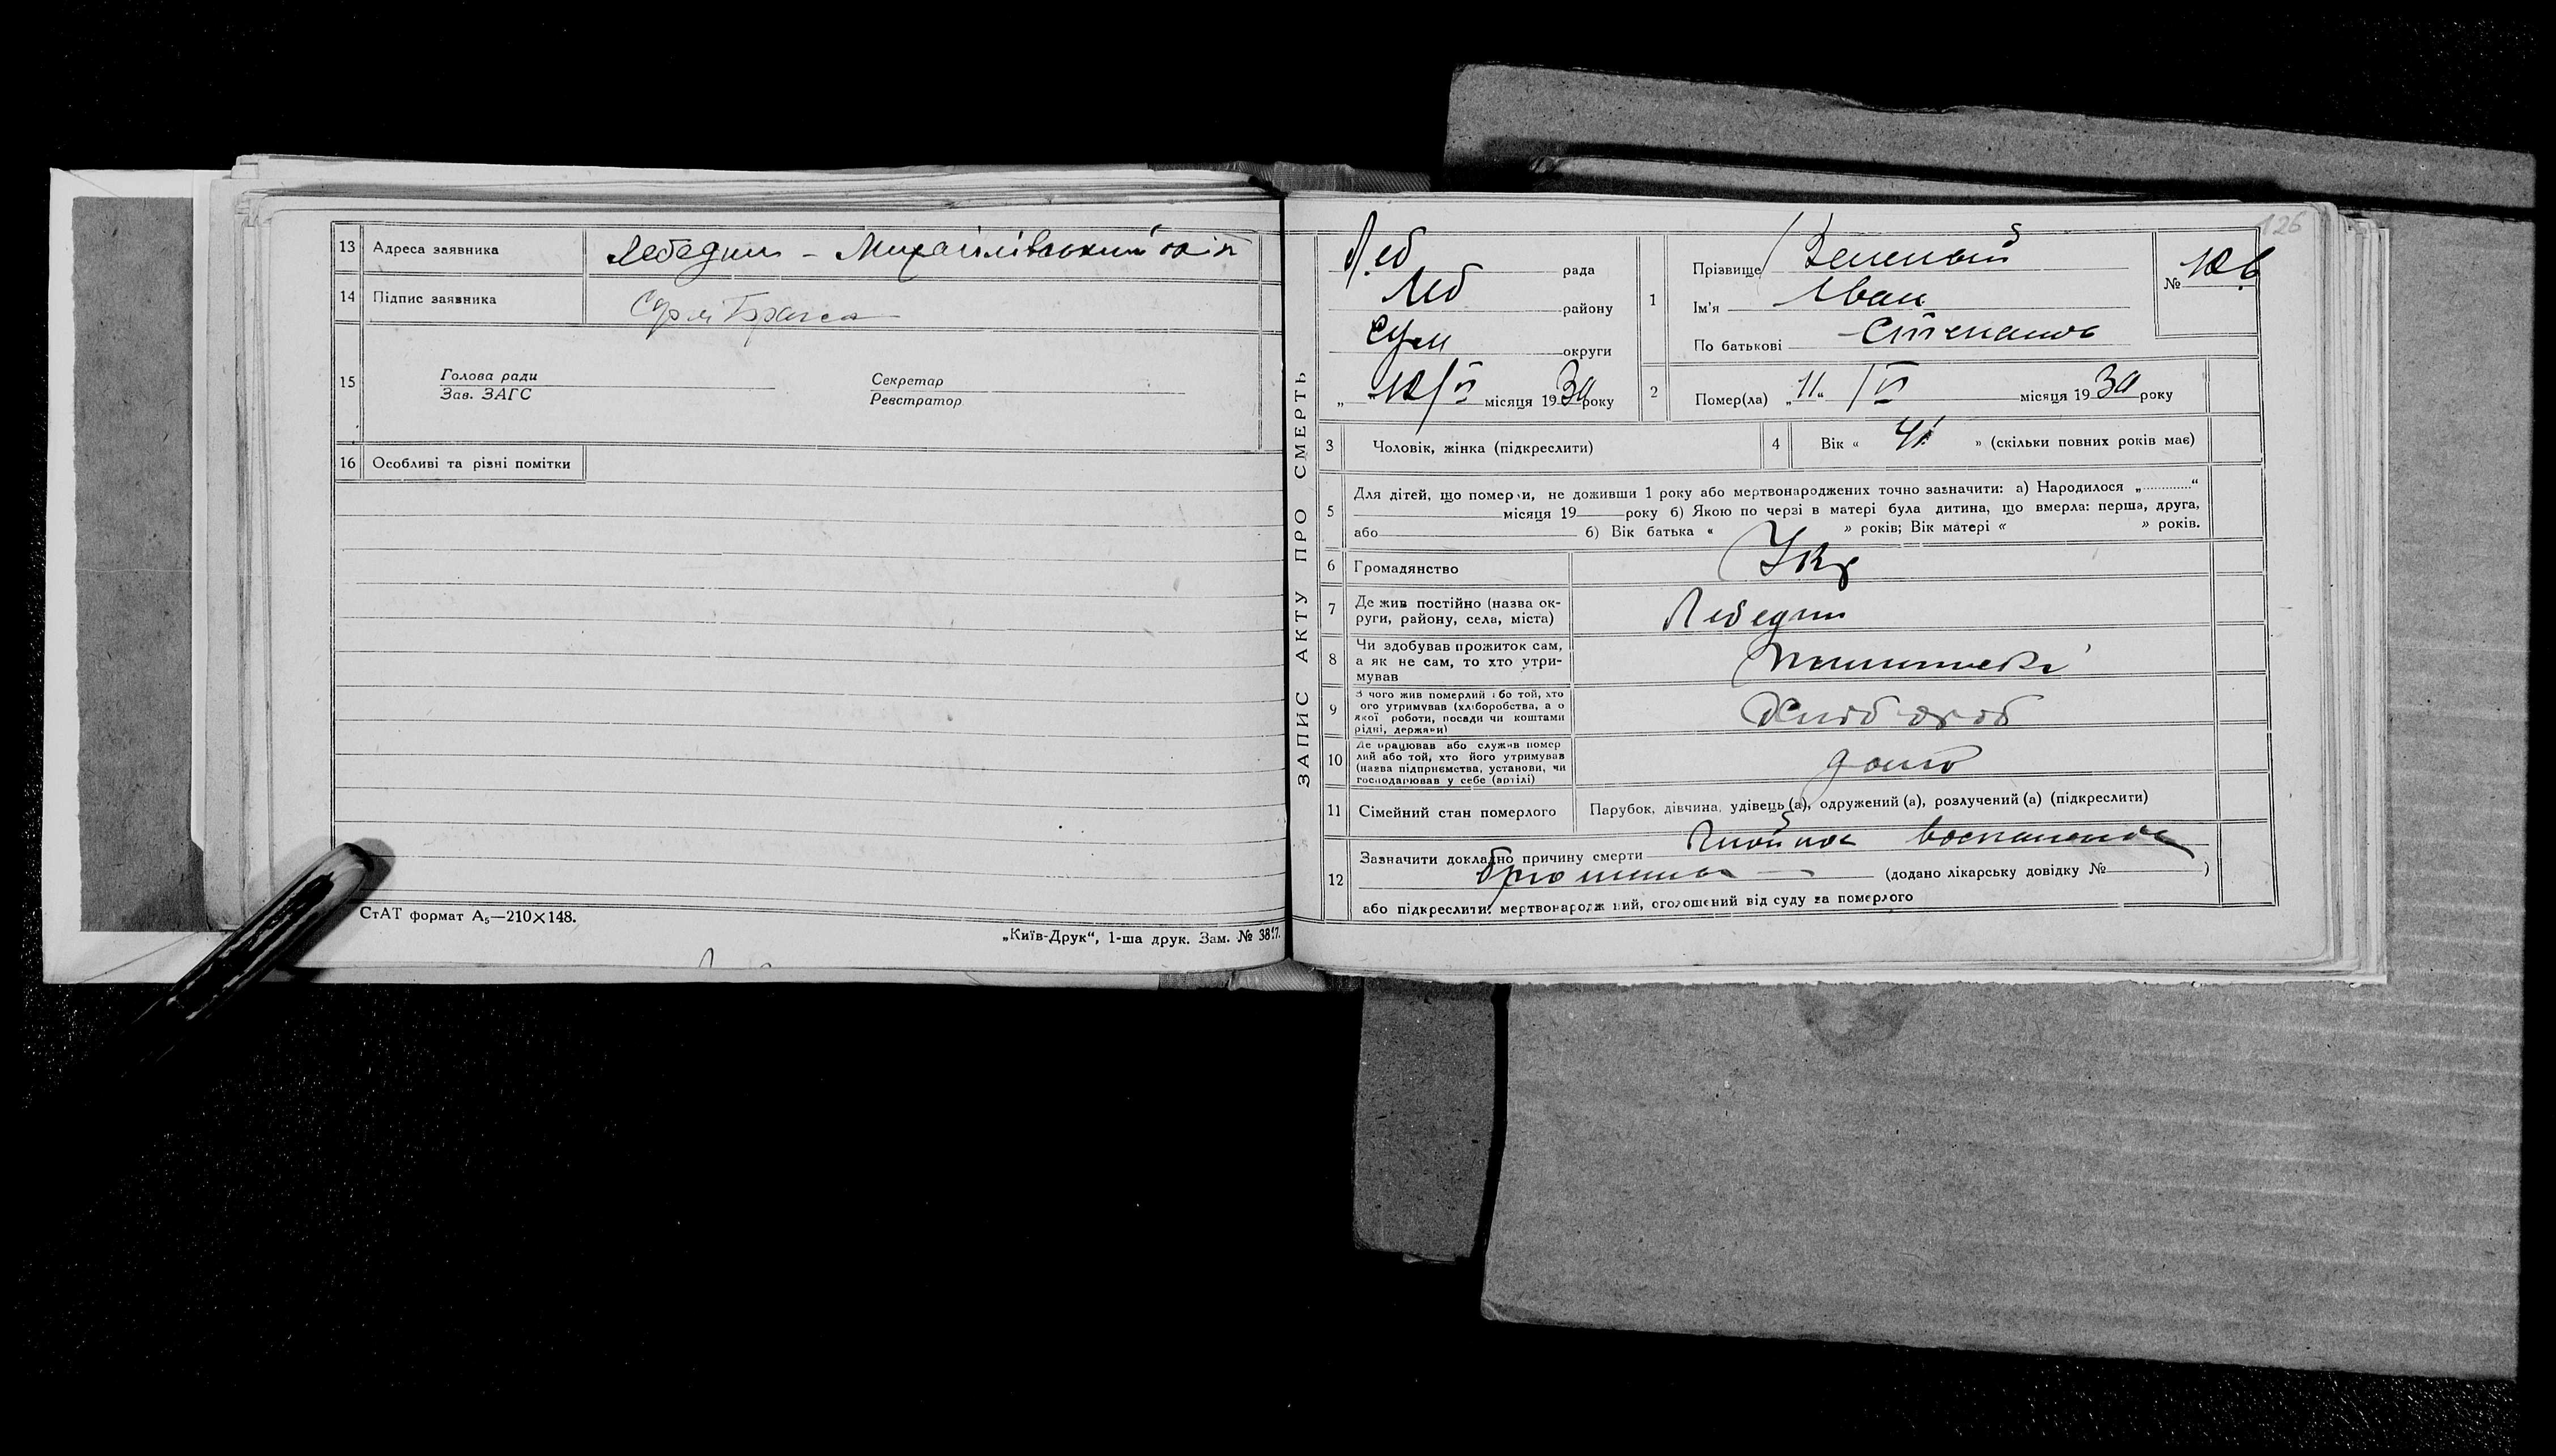 13 Адреса заявника Лебедин – Михайлівський
14 Підпис заявника
15 Голова ради Секретар
Зав. ЗАГС Реєстратор
16 Особливі та різні помітки
СтАТ формат А₅—210×148.
„Київ-Друк“, 1-ша друк. Зам. №
126
ЗАПИС АКТУ ПРО СМЕРТЬ
Леб рада
Леб району
Сум округи
місяця 1930 року
1 Прізвище Зеленый
Ім'я Іван
По батькові Степанов
№
2 Помер(ла) „11“ /VI місяця 1930 року
3 Чоловік, жінка (підкреслити)
4 Вік « 41 » (скільки повних років має)
5 Для дітей, що померли, не доживши 1 року або мертвонароджених точно зазначити: а) Народилося „............“
місяця 19 року б) Якою по черзі в матері була дитина, що вмерла: перша, друга,
або б) Вік батька « » років; Вік матері « » років.
6 Громадянство Укр
7 Де жив постійно (назва ок-
руги, району, села, міста) Лебедин
8 Чи здобував прожиток сам,
а як не сам, то хто утри-
мував
9 З чого жив померлий або той, хто
ого утримував (хліборобства, а о
якої роботи, посади чи коштами
рідні, держави) Хлібороб
10 Де працював або служив помер
лий або той, хто його утримував
(назва підприємства, установи, чи
господарював у себе (артілі) дома
11 Сімейний стан померлого Парубок, дівчина, удівець (а), одружений (а), розлучений (а) (підкреслити)
12 Зазначити докладно причину смерти Гнойное воспаление
брюшины — (додано лікарську довідку № )
або підкреслити: мертвонароджений, оголошений від суду за померлого